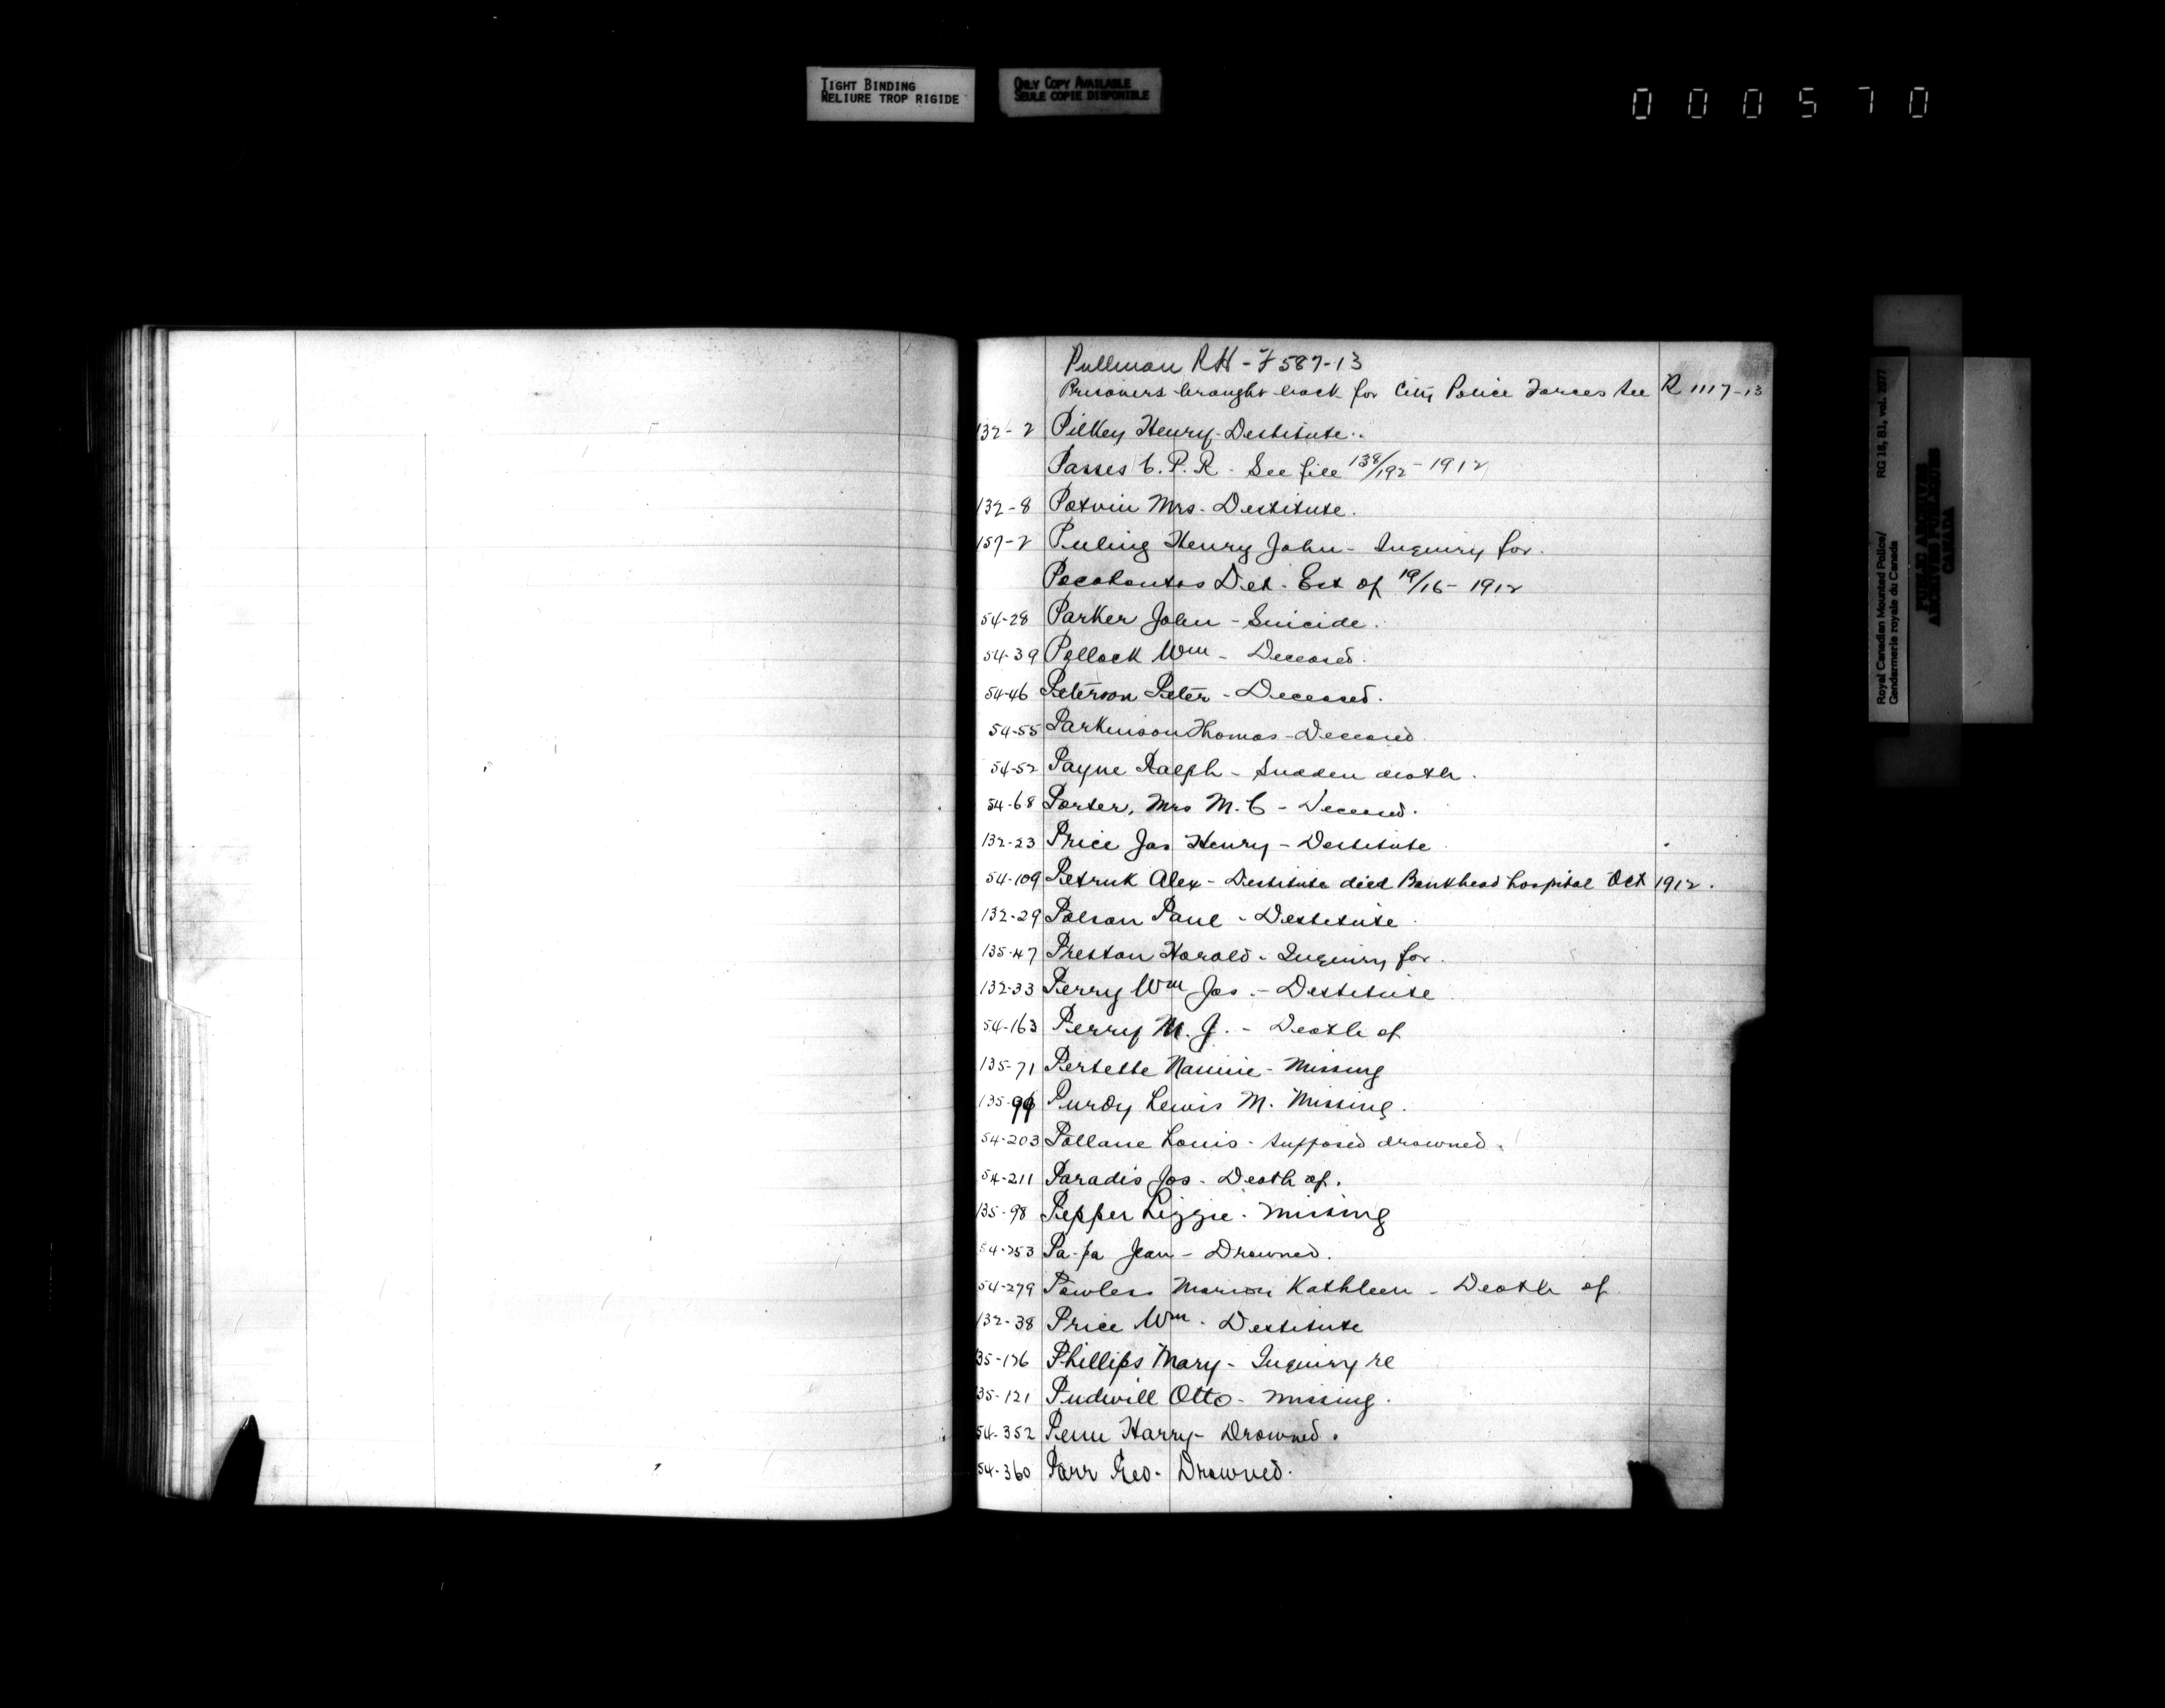 TIGHT BINDING
RELIURE TROP RIGIDE
ONLY COPY AVAILABLE
SEULE COPIE DISPONIBLE
000570
Pullman RH - F 587-13
Prisoners brought back for City Police Forces See R 1117-13
132-2 Pilkey Henry - Destitute.
Passes C.P.R. - See file 138/192 - 1912
132-8 Potvin Mrs. Destitute.
157-2 Puling Henry John - Inquiry for.
Pocohontas Det. Est of 19/16 - 1912
54-28 Parker John - Suicide.
54-39 Pollock Wm - Deceased.
54-46 Peterson Peter - Deceased.
54-55 Parkinson Thomas - Deceased
54-52 Payne Ralph - Sudden death.
54-68 Porter, Mrs M.C - Deceased.
132-23 Price Jas Henry - Destitute
54-109 Petruk Alex - Destitute died Bankhead hospital Oct 1912.
132-29 Polson Paul - Destitute
135-47 Preston Harold - Inquiry for.
132-33 Perry Wm Jas. - Destitute
54-163 Perry M.J. - Death of
135-71 Pertette Nannie - Missing
135- Purdy Lewis M. Missing.
54-203 Pollane Louis - Supposed drowned.
54-211 Paradis Jos - Death of.
135-98 Pepper Lizzie. Missing
54-253 Pa-pa Jean - Drowned.
54-279 Powless Marion Kathleen - Death of
132-38 Price Wm. Destitute
135-126 Phillips Mary - Inquiry re
135-121 Pudwill Otto - Missing.
54-352 Penn Harry - Drowned.
54-360 Parr Geo - Drowned.
Royal Canadian Mounted Police/
Gendarmerie royale du Canada
RG 18, B1, vol. 2077
PUBLIC ARCHIVES
ARCHIVES PUBLIQUES
CANADA